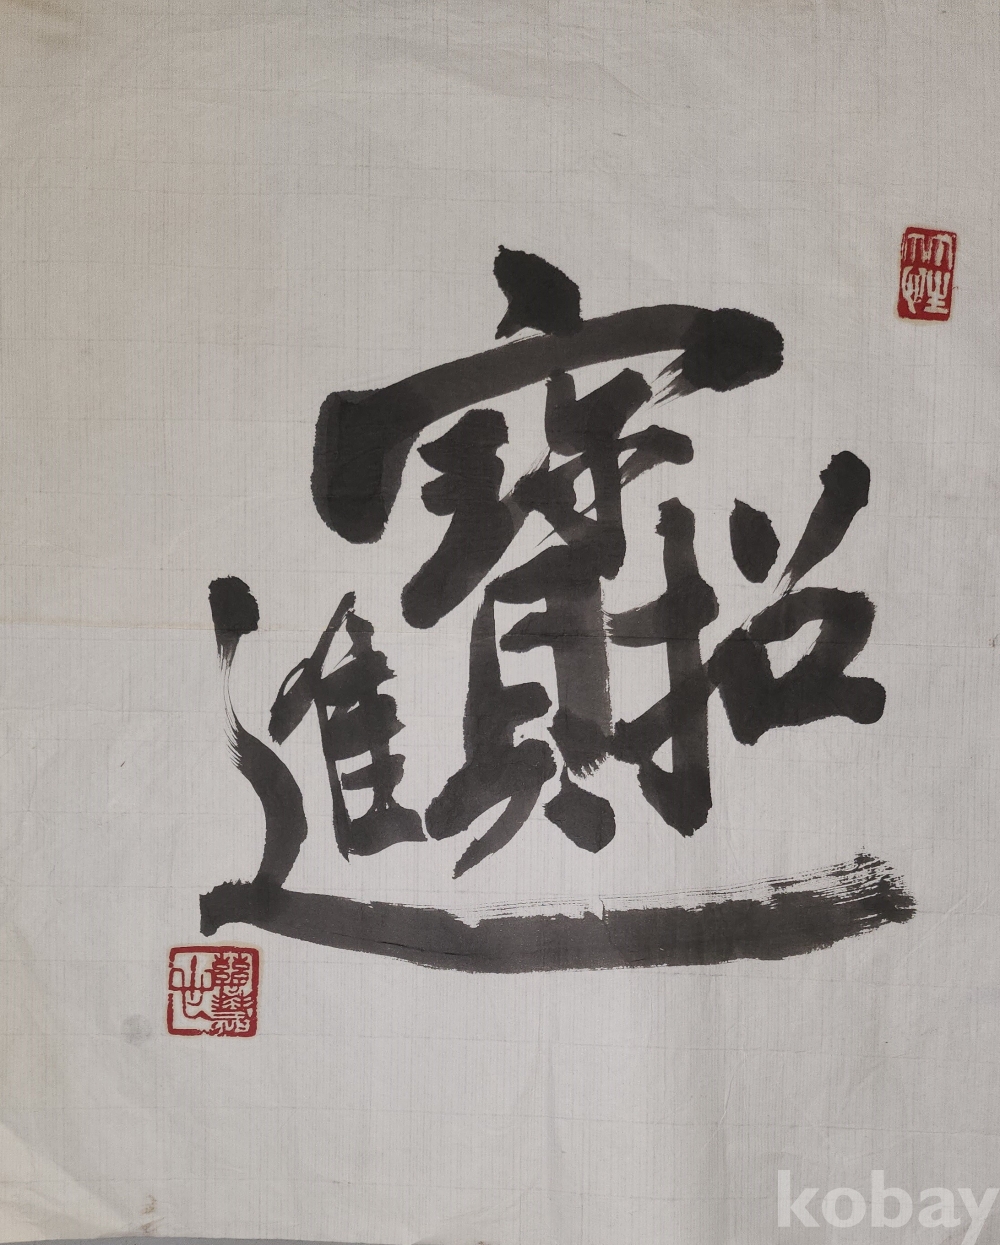 招財進寶
kobay